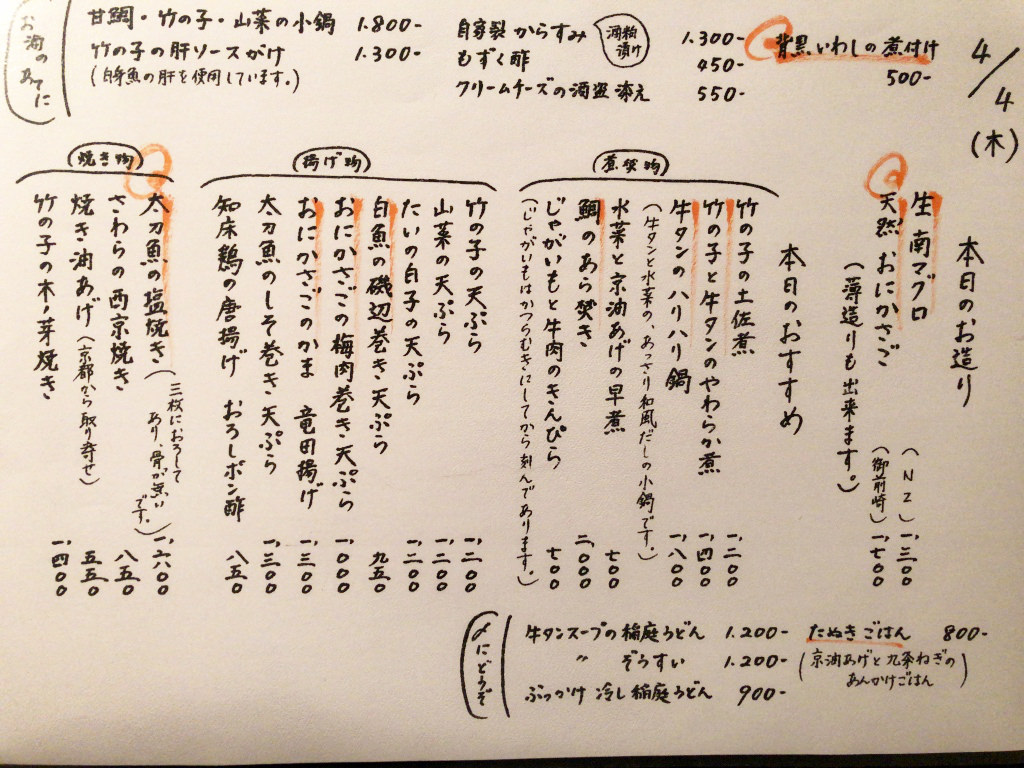 4/4(木)
お酒のあてに
甘鯛・竹の子・山菜の小鍋 1.800-
竹の子の肝ソースがけ 1.300-
(白身魚の肝を使用しています。)
自家製からすみ 酒粕漬け 1.300-
もずく酢 450-
クリームチーズの酒盗添え 550-
背黒いわしの煮付け 500-
本日のお造り
生南マグロ (NZ) 一、三〇〇
天然おにかさご (御前崎) 一、七〇〇
(薄造りも出来ます。)
本日のおすすめ
煮焚物
竹の子の土佐煮 一、二〇〇
竹の子と牛タンのやわらか煮 一、四〇〇
牛タンのハリハリ鍋 一、八〇〇
(牛タンと水菜の、あっさり和風だしの小鍋です。)
水菜と京油あげの早煮 七〇〇
鯛のあら焚き 二、〇〇〇
じゃがいもと牛肉のきんぴら 七〇〇
(じゃがいもはかつらむきにしてから刻んであります。)
揚げ物
竹の子の天ぷら 一、二〇〇
山菜の天ぷら 一、二〇〇
たいの白子の天ぷら 一、二〇〇
白魚の磯辺巻き天ぷら 九五〇
おにかさごの梅肉巻き天ぷら 一、〇〇〇
おにかさごのかま 竜田揚げ 一、三〇〇
太刀魚のしそ巻き天ぷら 一、三〇〇
知床鶏の唐揚げ おろしポン酢 八五〇
焼き物
太刀魚の塩焼き 一、六〇〇
(三枚におろして
あり、骨が無い
です。)
さわらの西京焼き 八五〇
焼き油あげ (京都から取り寄せ) 五五〇
竹の子の木ノ芽焼き 一、四〇〇
〆にどうぞ
牛タンスープの稲庭うどん 1.200-
〃 ぞうすい 1.200-
ぶっかけ 冷し稲庭うどん 900-
たぬきごはん 800-
(京油あげと九条ねぎの
あんかけごはん)